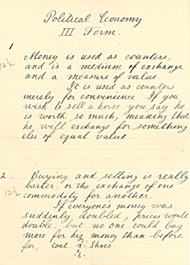 Political Economy
III Form.
1
Money is used as counters,
and is a medium of exchange
and a measure of value
It is used as counters
merely for convenience. If you
wish to sell a horse you say he
is worth so much, meaning that
he will exchange for something
else of equal value.
2. Buying and selling is really
barter, or the exchange of one
commodity for another.
If everyones money was
suddenly doubled, prices would
double, but no one could buy
more for his money than before
for, coat Shoes